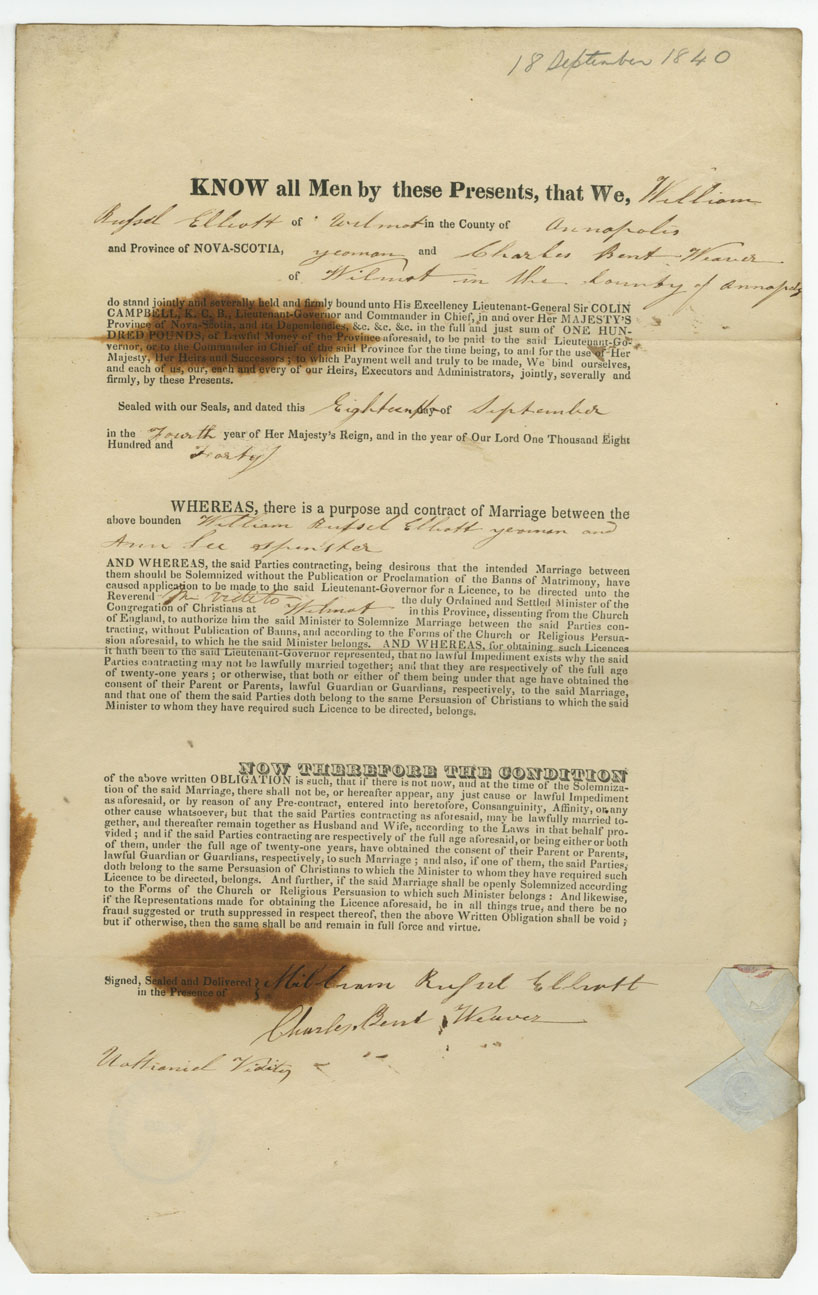 18 September 1840
KNOW all Men by these Presents, that We, William
Rufsel Elliott of Wilmot in the County of Annapolis
and Province of NOVA-SCOTIA, yeoman and Charles Bent Weaver
of Wilmot in the County of Annapolis
do stand jointly and severally held and firmly bound unto His Excellency Lieutenant-General Sir COLIN
CAMPBELL, K. C. B., Lieutenant-Governor and Commander in Chief, in and over Her MAJESTY'S
Province of Nova-Scotia, and its Dependencies, &c. &c. &c. in the full and just sum of ONE HUN-
DRED POUNDS, of Lawful Money of the Province aforesaid, to be paid to the said Lieutenant-Go-
vernor, or to the Commander in Chief of the said Province for the time being, to and for the use of Her
Majesty, Her Heirs and Successors ; to which Payment well and truly to be made, We bind ourselves,
and each of us, our, each and every of our Heirs, Executors and Administrators, jointly, severally and
firmly, by these Presents.
Sealed with our Seals, and dated this Eighteenth day of September
in the Fourth year of Her Majesty's Reign, and in the year of Our Lord One Thousand Eight
Hundred and Forty
WHEREAS, there is a purpose and contract of Marriage between the
above bounden William Rufsel Elliott yeoman and
Ann Lee spinster
AND WHEREAS, the said Parties contracting, being desirous that the intended Marriage between
them should be Solemnized without the Publication or Proclamation of the Banns of Matrimony, have
caused application to be made to the said Lieutenant-Governor for a Licence, to be directed unto the
Reverend Videto the duly Ordained and Settled Minister of the
Congregation of Christians at Wilmot in this Province, dissenting from the Church
of England, to authorize him the said Minister to Solemnize Marriage between the said Parties con-
tracting, without Publication of Banns, and according to the Forms of the Church or Religious Persua-
sion aforesaid, to which he the said Minister belongs. AND WHEREAS, for obtaining such Licences
it hath been to the said Lieutenant-Governor represented, that no lawful Impediment exists why the said
Parties contracting may not be lawfully married together; and that they are respectively of the full age
of twenty-one years ; or otherwise, that both or either of them being under that age have obtained the
consent of their Parent or Parents, lawful Guardian or Guardians, respectively, to the said Marriage,
and that one of them the said Parties doth belong to the same Persuasion of Christians to which the said
Minister to whom they have required such Licence to be directed, belongs.
NOW THEREFORE THE CONDITION
of the above written OBLIGATION is such, that if there is not now, and at the time of the Solemniza-
tion of the said Marriage, there shall not be, or hereafter appear, any just cause or lawful Impediment
as aforesaid, or by reason of any Pre-contract, entered into heretofore, Consanguinity, Affinity, or any
other cause whatsoever, but that the said Parties contracting as aforesaid, may be lawfully married to-
gether, and thereafter remain together as Husband and Wife, according to the Laws in that behalf pro-
vided ; and if the said Parties contracting are respectively of the full age aforesaid, or being either or both
of them, under the full age of twenty-one years, have obtained the consent of their Parent or Parents,
lawful Guardian or Guardians, respectively, to such Marriage ; and also, if one of them, the said Parties,
doth belong to the same Persuasion of Christians to which the Minister to whom they have required such
Licence to be directed, belongs. And further, if the said Marriage shall be openly Solemnized according
to the Forms of the Church or Religious Persuasion to which such Minister belongs : And likewise,
if the Representations made for obtaining the Licence aforesaid, be in all things true, and there be no
fraud suggested or truth suppressed in respect thereof, then the above Written Obligation shall be void ;
but if otherwise, then the same shall be and remain in full force and virtue.
Signed, Sealed and Delivered William Rufsel Elliott
in the Presence of
Charles Bent Weaver
Nathaniel Vidito